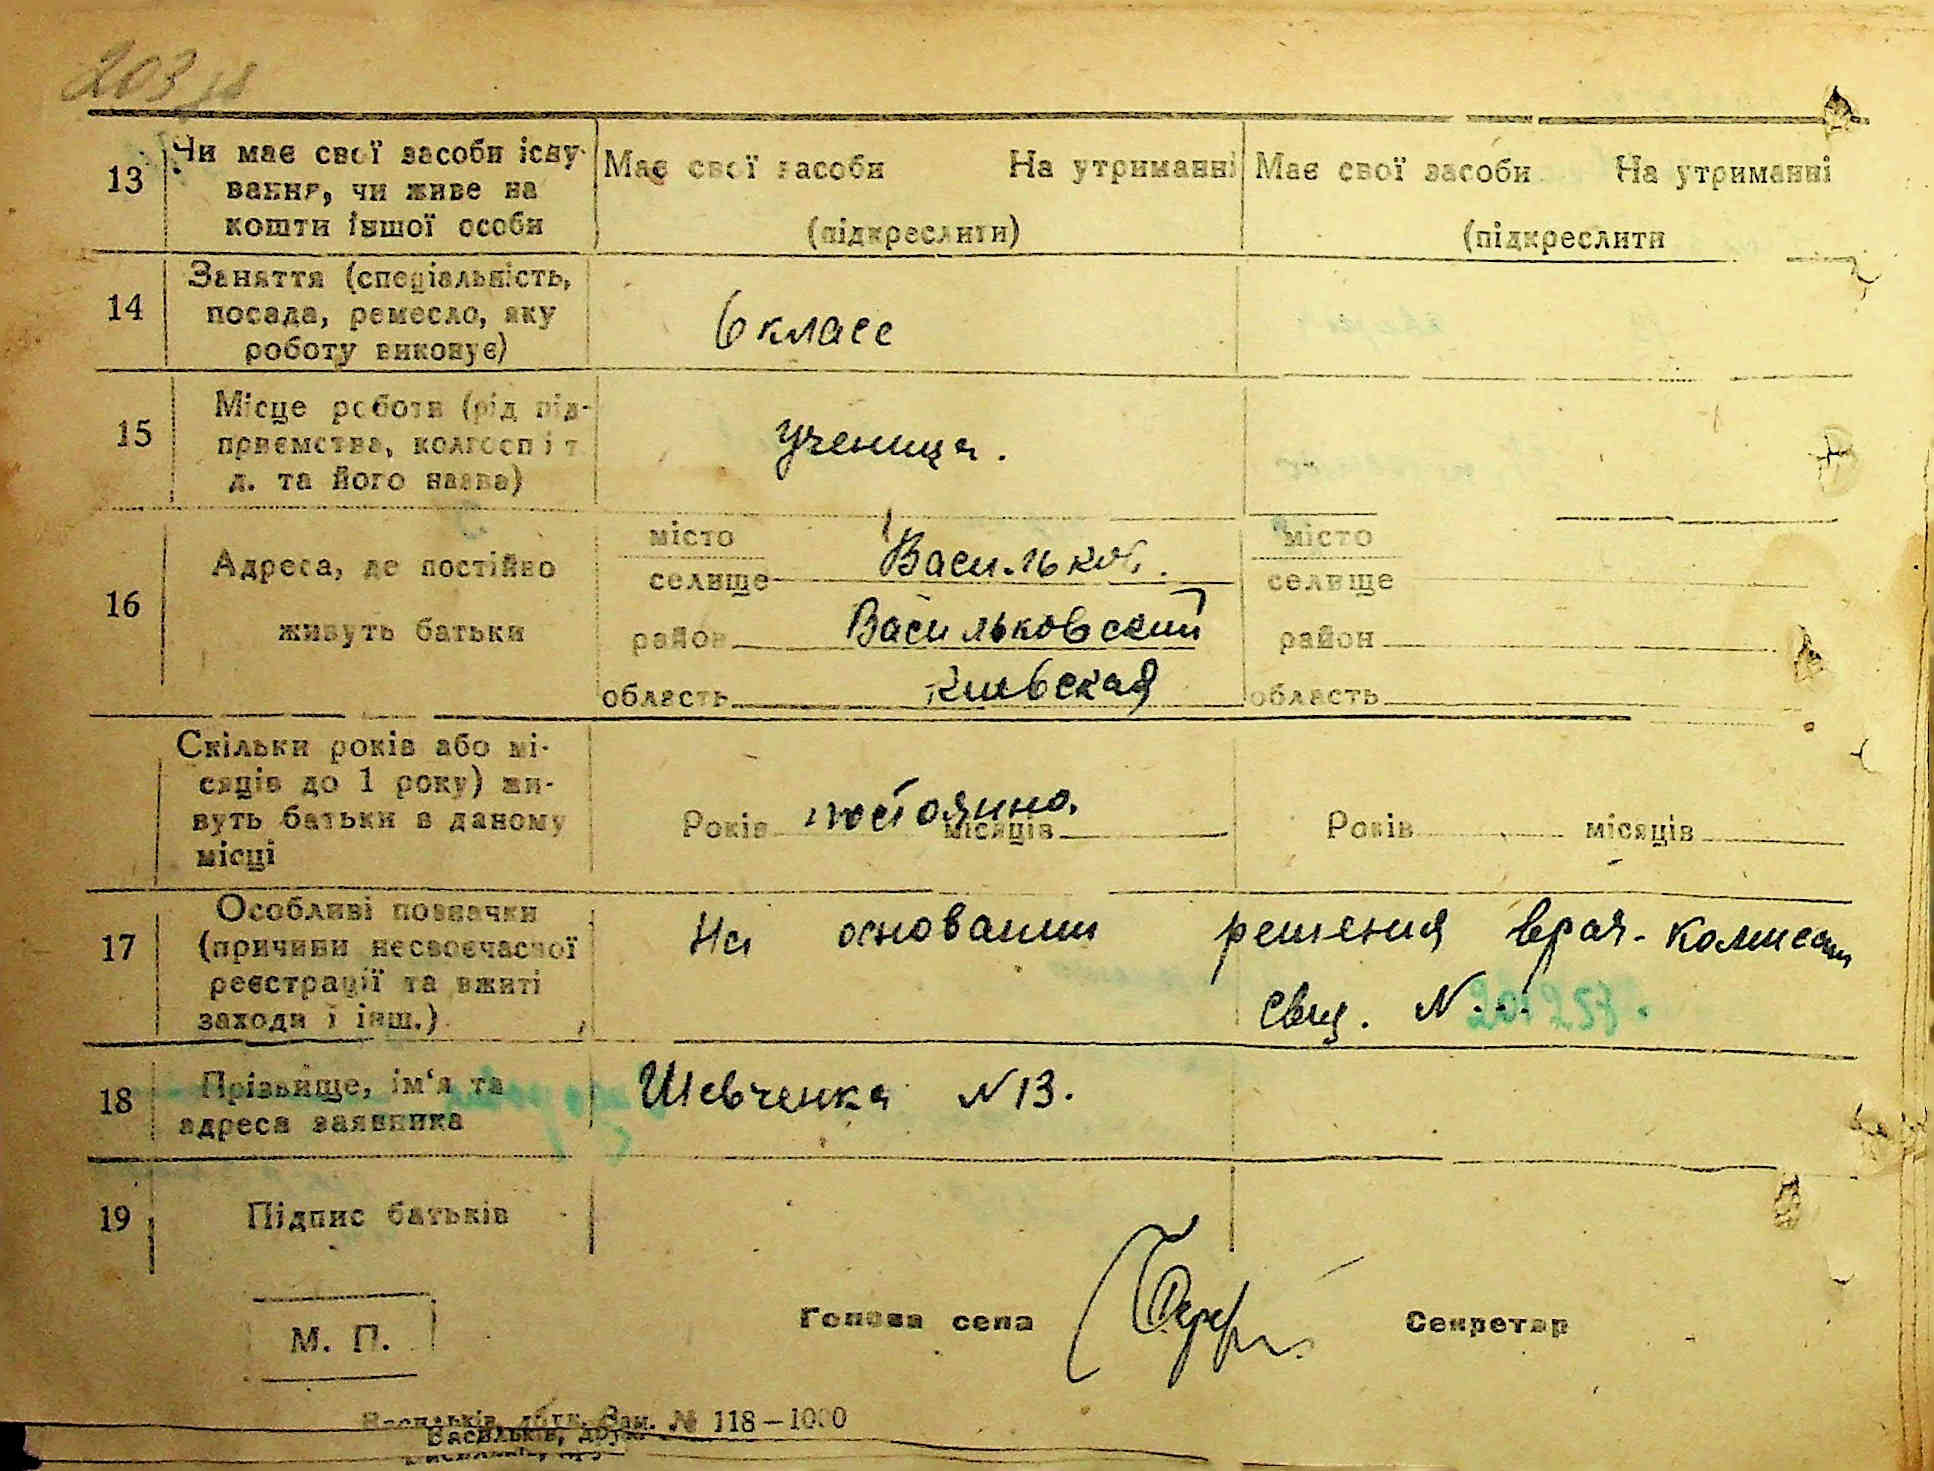 203
13
Чи має свої засоби існу-
вання, чи живе на
кошти іншої особи
Має свої засоби На утриманні
(підкреслити)
Має свої засоби На утриманні
(підкреслити
14
Заняття (спеціальність,
посада, ремесло, яку
роботу виконує)
6 класс
15
Місце роботи (рід під-
приємства, колгосп і т
д. та його назва)
ученица.
16
Адреса, де постійно
живуть батьки
місто
селище
Васильков.
район Васильковский
область Киевская
місто
селище
район
область
Скільки років або мі-
сяців до 1 року) жи-
вуть батьки в даному
місці
Років постоянно. місяців
Років місяців
17
Особливі позначки
(причини несвоєчасної
реєстрації та вжиті
заходи і інш.)
На основании решения врач. комиссии
свид. N 201257.
18
Прізвище, ім'я та
адреса заявника
Шевченка N 13.
19
Підпис батьків
М. П.
Голова села
Секретар
Васильків, друк. Зам. № 118—1000
Васильків, друк.